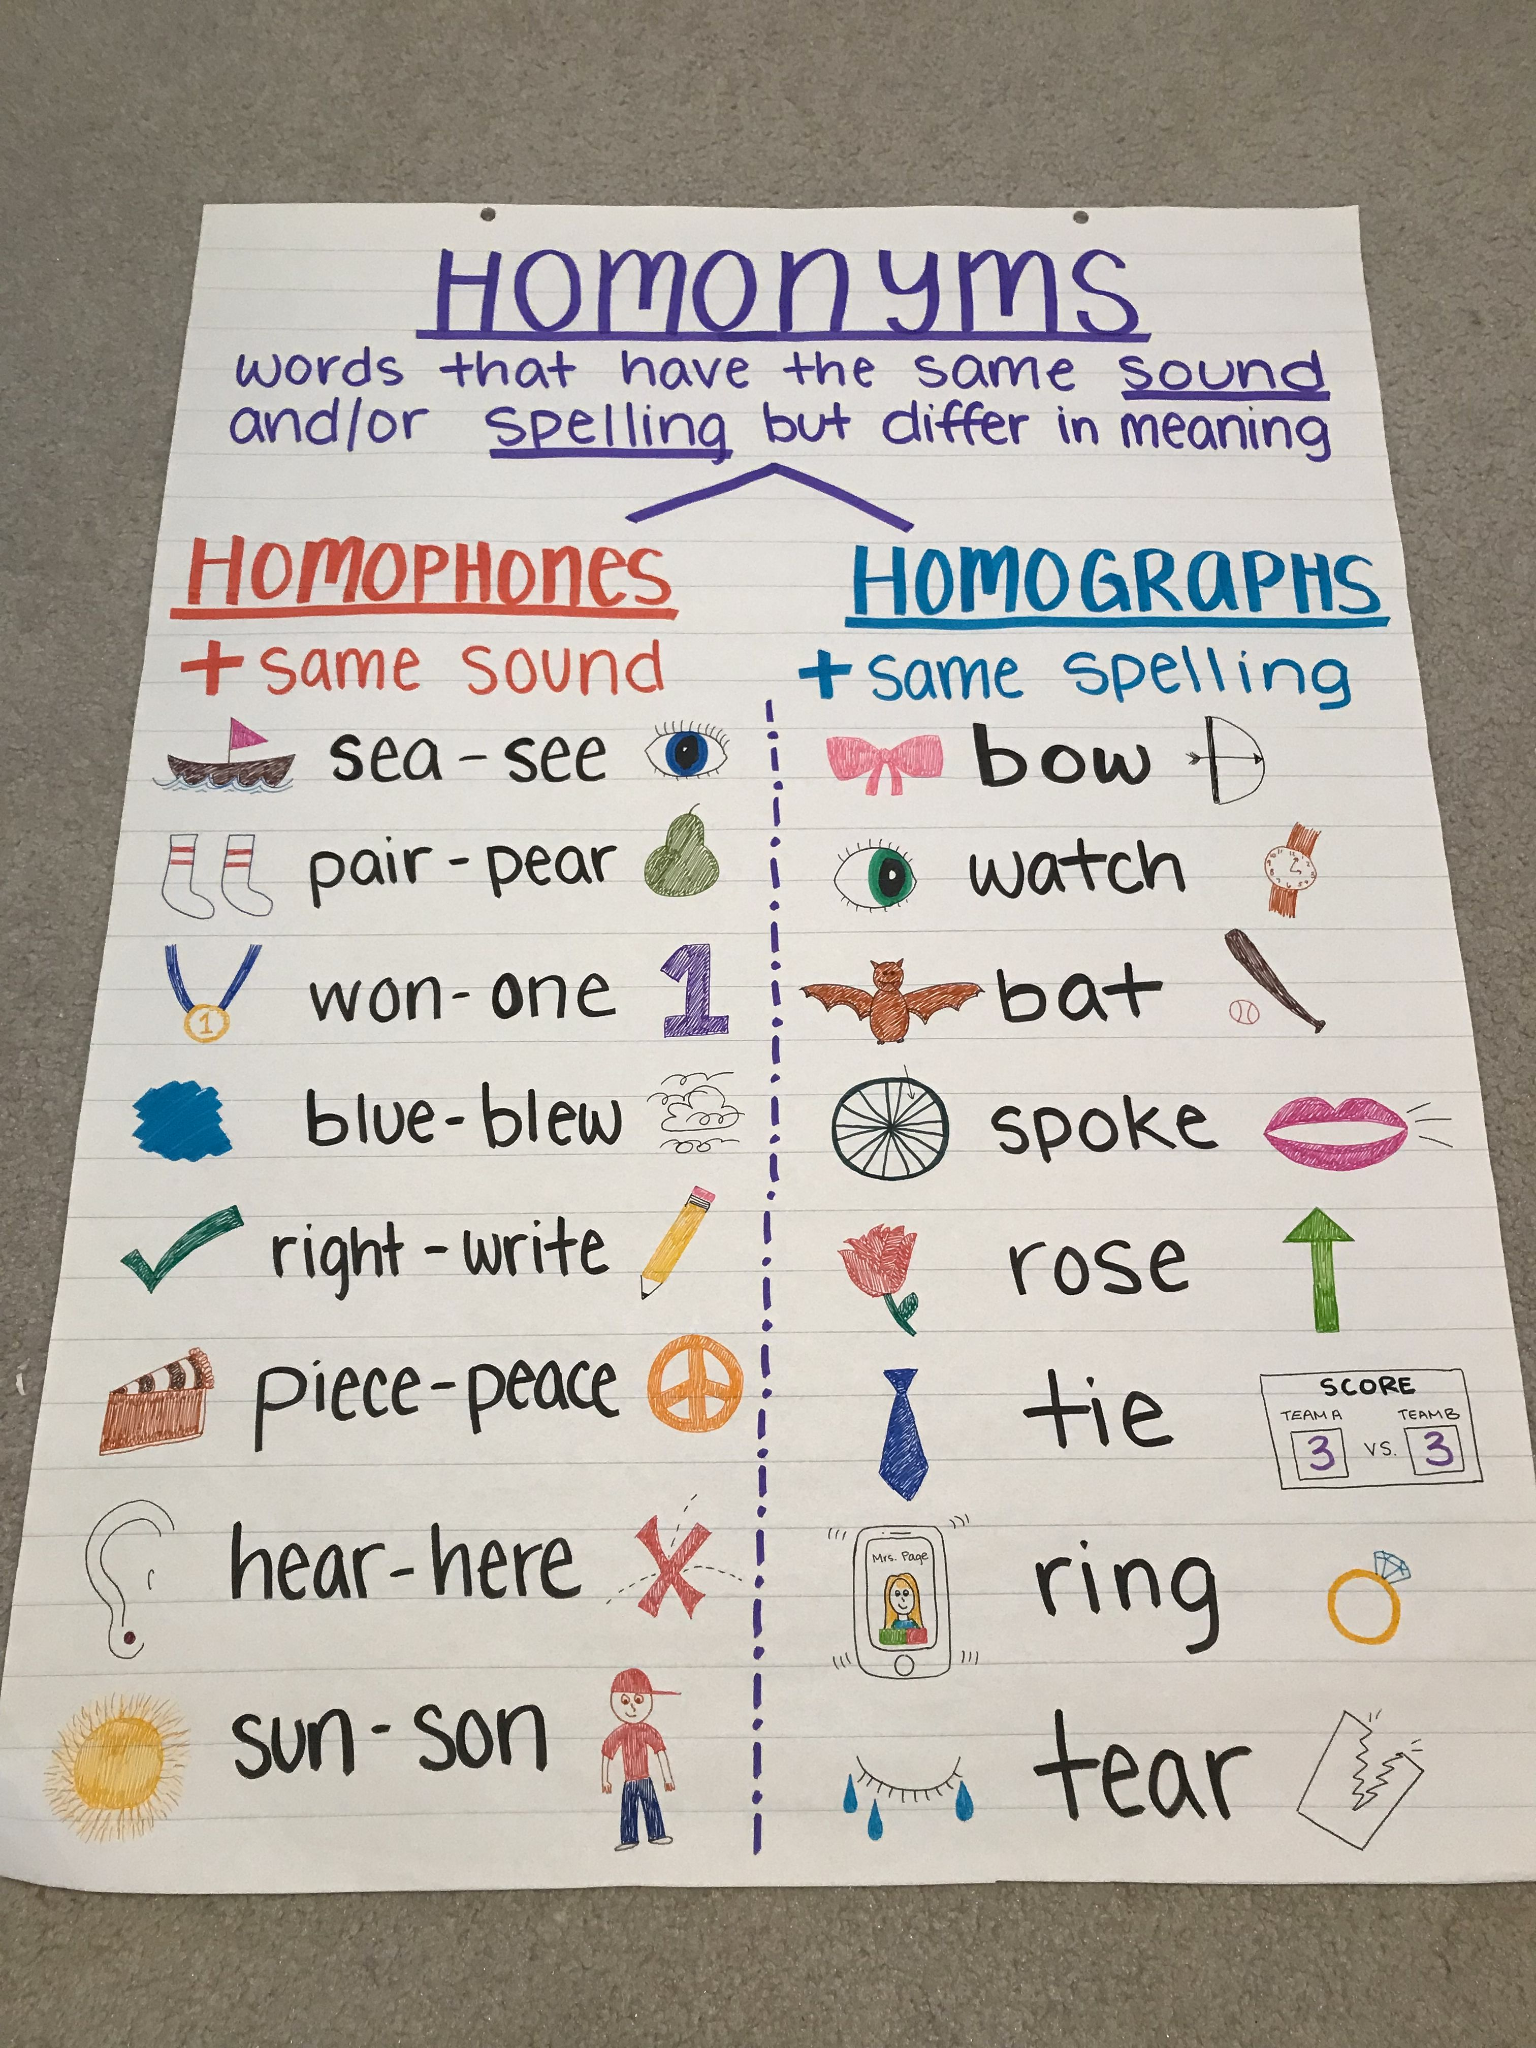 HOMONYMS
words that have the same sound
and/or spelling but differ in meaning
HOMOPHONES
+ same sound
sea - see
pair - pear
1
won - one
1
blue - blew
right - write
piece - peace
hear - here
sun - son
HOMOGRAPHS
+ same spelling
bow
watch
bat
spoke
rose
tie
SCORE
TEAM A TEAM B
3 VS. 3
Mrs. Page
ring
tear